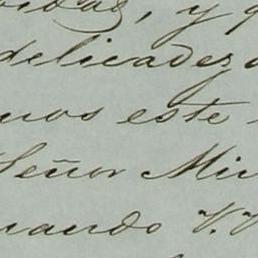 , y
delicadez
nos este
Señor Mi
uando V.